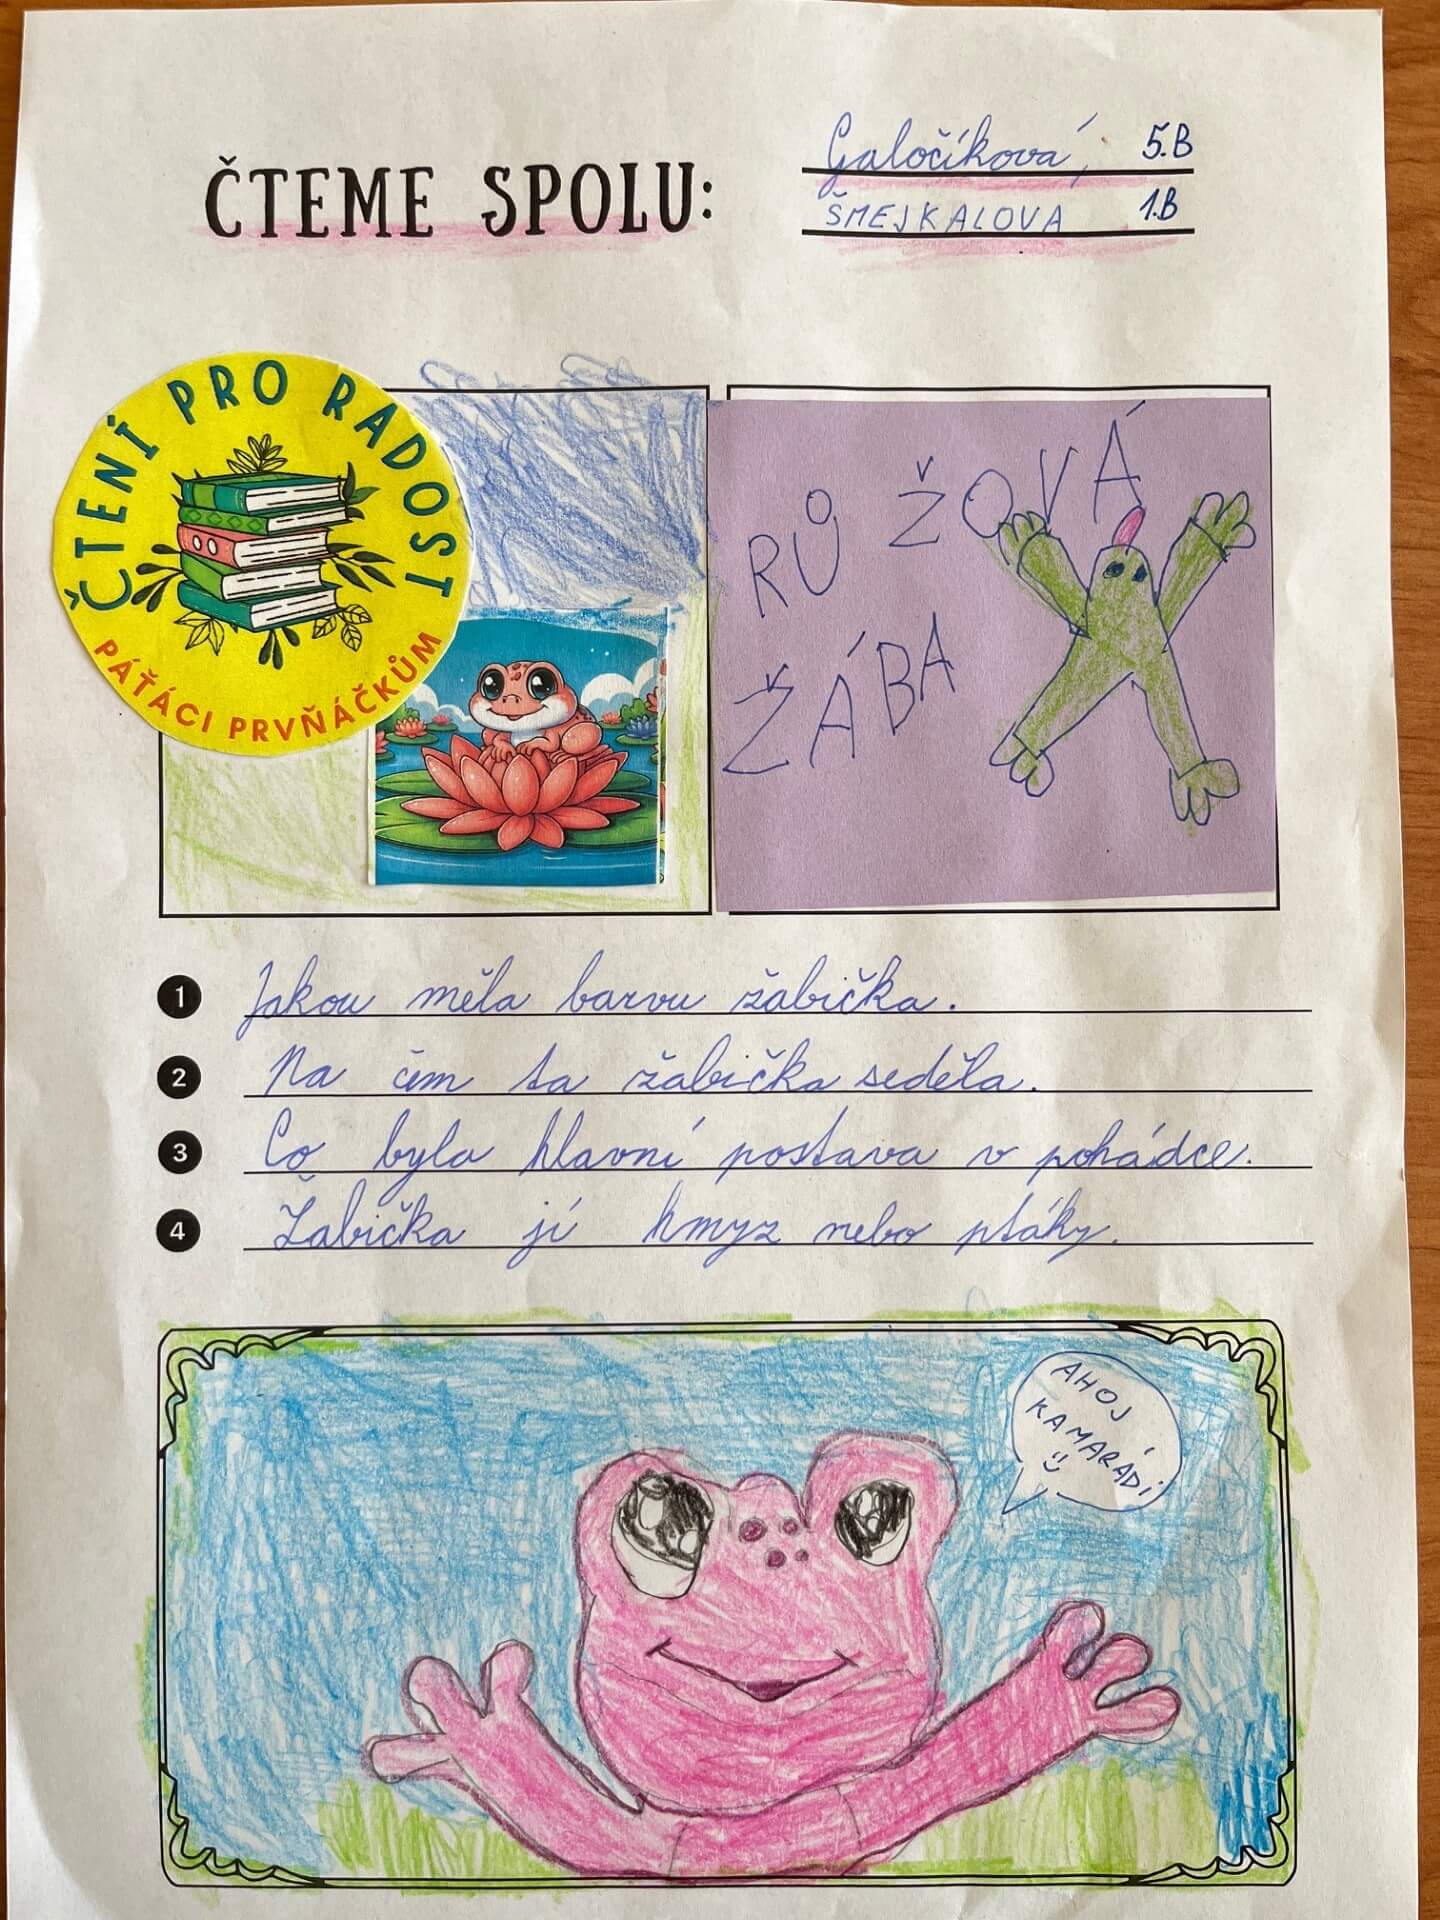 ČTEME SPOLU:
Galočíková, 5.B
ŠMEJKALOVA 1.B
ČTENÍ PRO RADOST
PÁŤÁCI PRVŇÁČKŮM
RŮŽOVÁ
ŽÁBA
1 Jakou měla barvu žabička.
2 Na čem ta žabička seděla.
3 Co byla hlavní postava v pohádce.
4 Žabička jí hmyz nebo ptáky.
AHOJ
KAMARÁDI